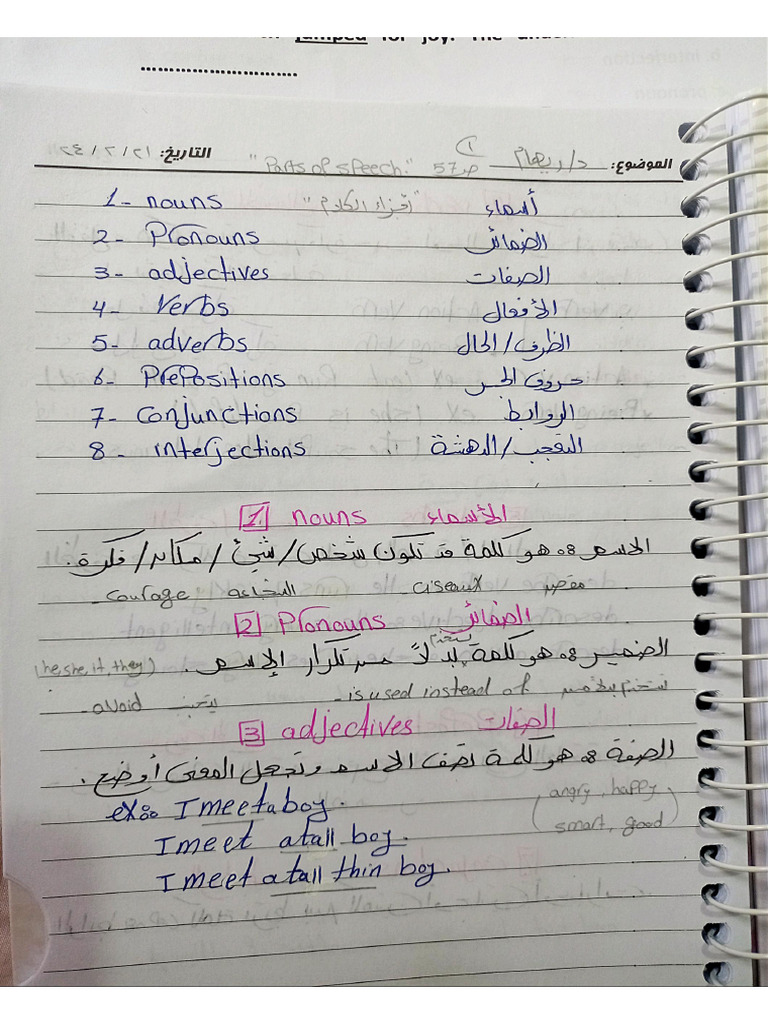 jumped for joy. The
الموضوع: د/ ريهام ① ص 57 "Parts of speech." التاريخ: ٢١ / ٢ / ٢٤
1- nouns "أجزاء الكلام" أسماء
2- Pronouns الضمائر
3- adjectives الصفات
4- Verbs الأفعال
5- adverbs الظرف/الحال
6- Prepositions حروف الجر
7- Conjunctions الروابط
8- interjections التعجب/الدهشة
1 nouns الأسماء
الاسم هو كلمة قد تكون شخص/شيئ/مكان/فكرة.
- courage الشجاعة - ciseaux مقص
2 Pronouns الضمائر
يستخدم
الضمير هو كلمة بدلاً من تكرار الإسم. (he, she, it, they)
- avoid يتجنب - is used instead of
3 adjectives الصفات
الصفة هو كلمة تصف الاسم وتجعل المعنى أوضح.
ex: I meet a boy. (angry, happy
I meet a tall boy. smart, good)
I meet a tall thin boy.